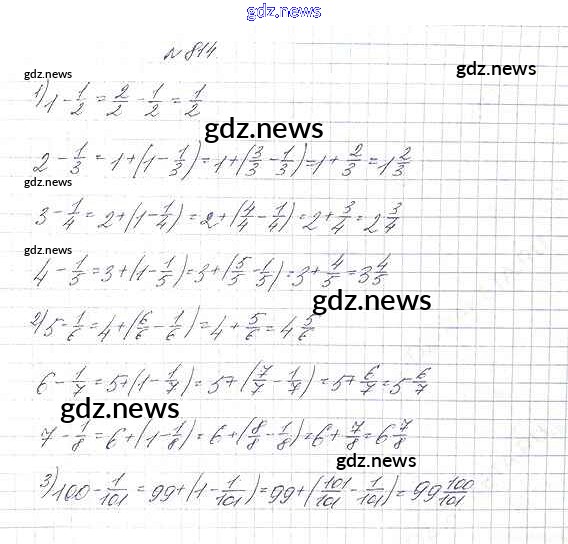 gdz.news
№814
gdz.news
gdz.news
1) 1 - 1/2 = 2/2 - 1/2 = 1/2
gdz.news
2 - 1/3 = 1 + (1 - 1/3) = 1 + (3/3 - 1/3) = 1 + 2/3 = 1 2/3
gdz.news
3 - 1/4 = 2 + (1 - 1/4) = 2 + (4/4 - 1/4) = 2 + 3/4 = 2 3/4
gdz.news
4 - 1/5 = 3 + (1 - 1/5) = 3 + (5/5 - 1/5) = 3 + 4/5 = 3 4/5
gdz.news
2) 5 - 1/6 = 4 + (6/6 - 1/6) = 4 + 5/6 = 4 5/6
6 - 1/7 = 5 + (1 - 1/7) = 5 + (7/7 - 1/7) = 5 + 6/7 = 5 6/7
gdz.news
7 - 1/8 = 6 + (1 - 1/8) = 6 + (8/8 - 1/8) = 6 + 7/8 = 6 7/8
gdz.news
3) 100 - 1/101 = 99 + (1 - 1/101) = 99 + (101/101 - 1/101) = 99 100/101